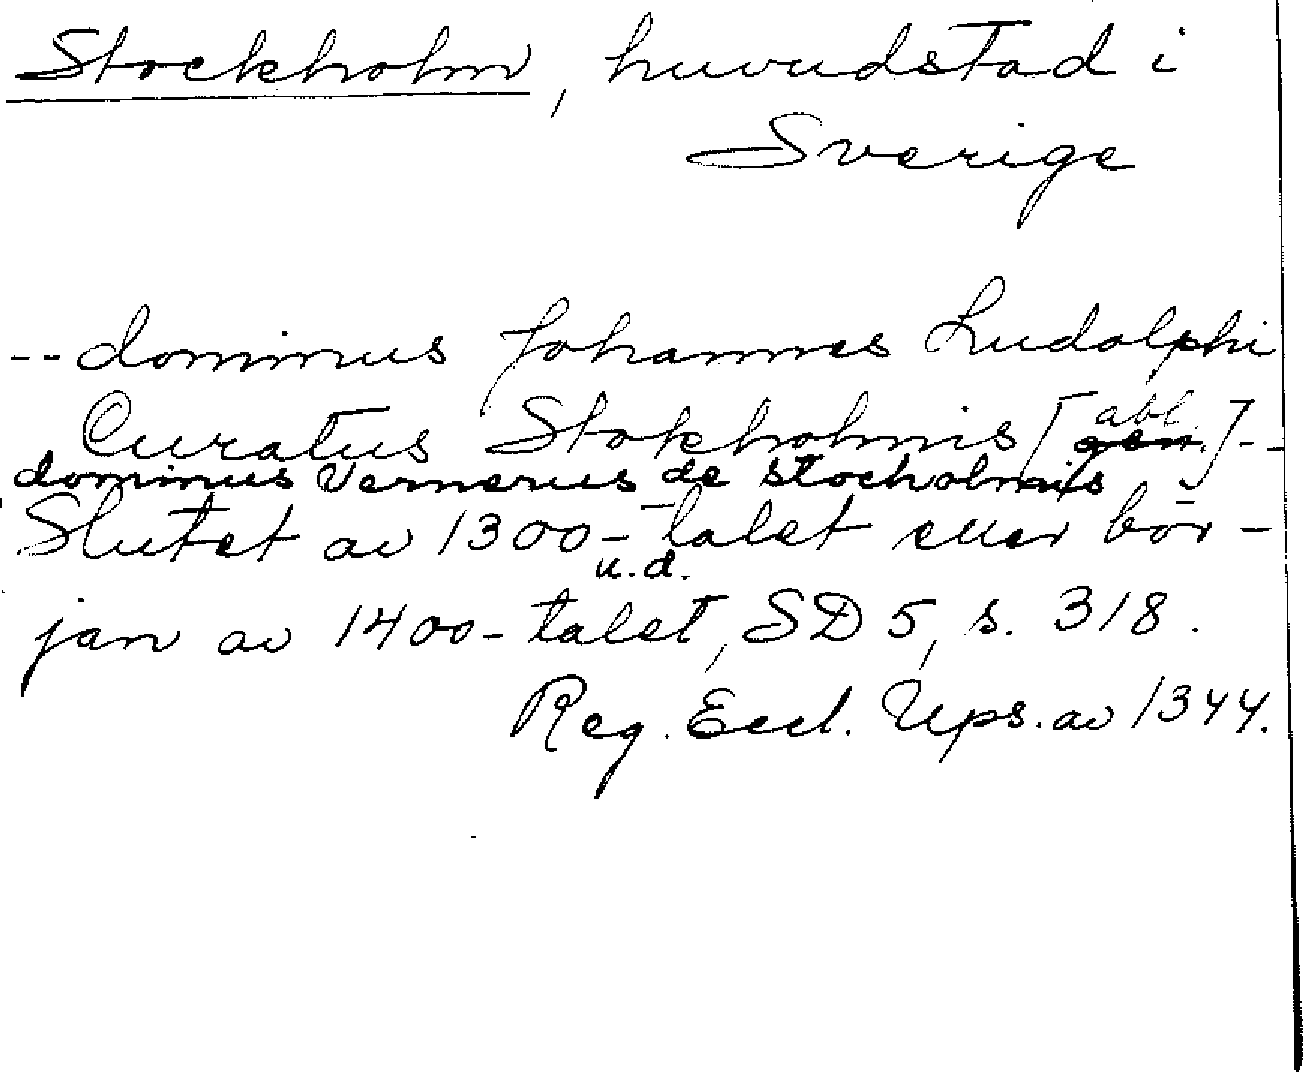 Stockholm, huvudstad i
Sverige
-- dominus Johannes Ludolphi
Curatus Stokholmis [abl.] --
dominus Vernerus de stocholmis
Slutet av 1300-talet eller bör-
u.d.
jan av 1400-talet, SD 5, s. 318.
Reg. Eccl. Ups. av 1344.